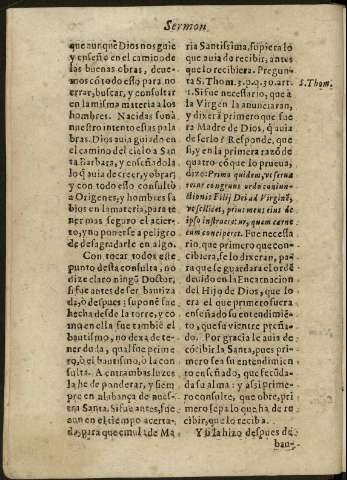 Sermon
que aunque Dios nos guie
y enseñe en el camino de
las buenas obras, deue-
mos cõ todo esso para no
errar, buscar, y consultar
en la misma materia a los
hombres. Nacidas son à
nuestro intento estas pala
bras. Dios auia guiado en
el camino del cielo a San
ta Barbara, y enseñadola
lo q̃ auia de creer, y obrar;
y con todo esso consultò
a Origenes, y hombres sa
bios en la materia, para te
ner mas seguro el acier-
to, y no ponerse a peligro
de desagradarle en algo.
Con tocar todos este
punto desta consulta, no
dize claro ningũ Doctor,
si fue antes de ser bautiza
da, ò despues: supone fue
hecha desde la torre, y co
mo en ella fue tambiẽ el
bautismo, no dexa de te-
ner duda, qual fue prime
ro, ò el bautismo, ò la con
sulta. A entrambas luzes
la he de ponderar, y siem
pre en alabança de nues-
tra Santa. Si fue antes, fue
aun en el tiempo acerta-
da, para que emula de Ma
ria Santissima, supiera lo
que auia do recibir, antes
que lo recibiera. Pregun-
ta S. Thom. 3. p. q. 30. art.
1. Si fue necessario, que a
la Virgen la anunciaran,
y dixera primero que fue
ra Madre de Dios, q̃ auia
de serlo? Responde, que
si, y en la primera razõ de
quatro cõ que lo prueua,
dize: Prima quidem, vt serua
retur congruus ordo coniun-
ctionis Filij Dei ad Virginẽ,
vt scilicet, prius mens eius de
ipso instrueretur, quam carne
eum conciperet. Fue necessa
rio, que primero que con-
cibiera, se lo dixeran, pa-
ra que se guardara el ordẽ
deuido en la Encarnacion
del Hijo de Dios, que lo
era el que primero fuera
enseñado su entendimiẽ-
to, que su vientre preña-
do. Por gracia le auia de
cõcibir la Santa, pues pri-
mero sea su entendimien
to enseñado, que fecũda-
da su alma: y assi prime-
ro consulte, que obre, pri
mero sepa lo que ha de re
cibir, que lo reciba.
Y si la hizo despues de
bau-
S. Thom.